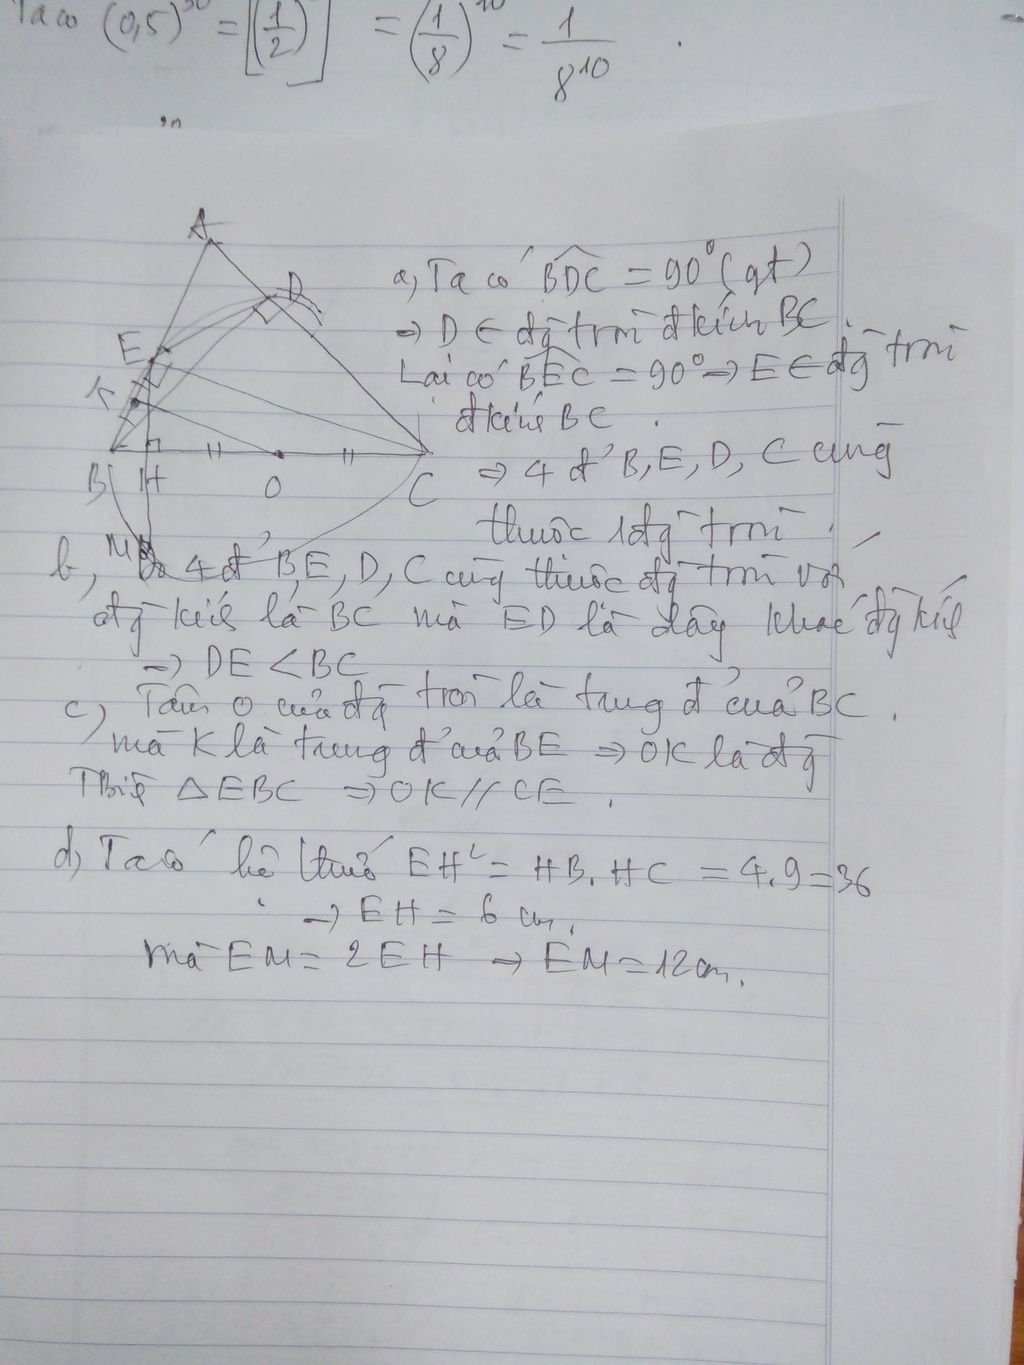 Ta có (0,5)^30 = [(1/2)^ ] = (1/8)^10 = 1/8^10 .
A
D
E
K
B H O C
M
a, Ta có BDC = 90° (gt)
⇒ D ∈ đg tròn đkính BC
Lại có BEC = 90° ⇒ E ∈ đg tròn
đkính BC .
⇒ 4 đ' B, E, D, C cùng
thuộc 1 đg tròn .
b, 4 đ' B, E, D, C cùng thuộc đg tròn với
đg kính là BC mà ED là dây khác đg kính
⇒ DE < BC
c, Tâm O của đg tròn là trung đ' của BC .
mà K là trung đ' của BE ⇒ OK là đg
TBình △EBC ⇒ OK // CE .
d, Ta có hệ thức EH² = HB . HC = 4.9 = 36
⇒ EH = 6 cm.
mà EM = 2EH ⇒ EM = 12cm.